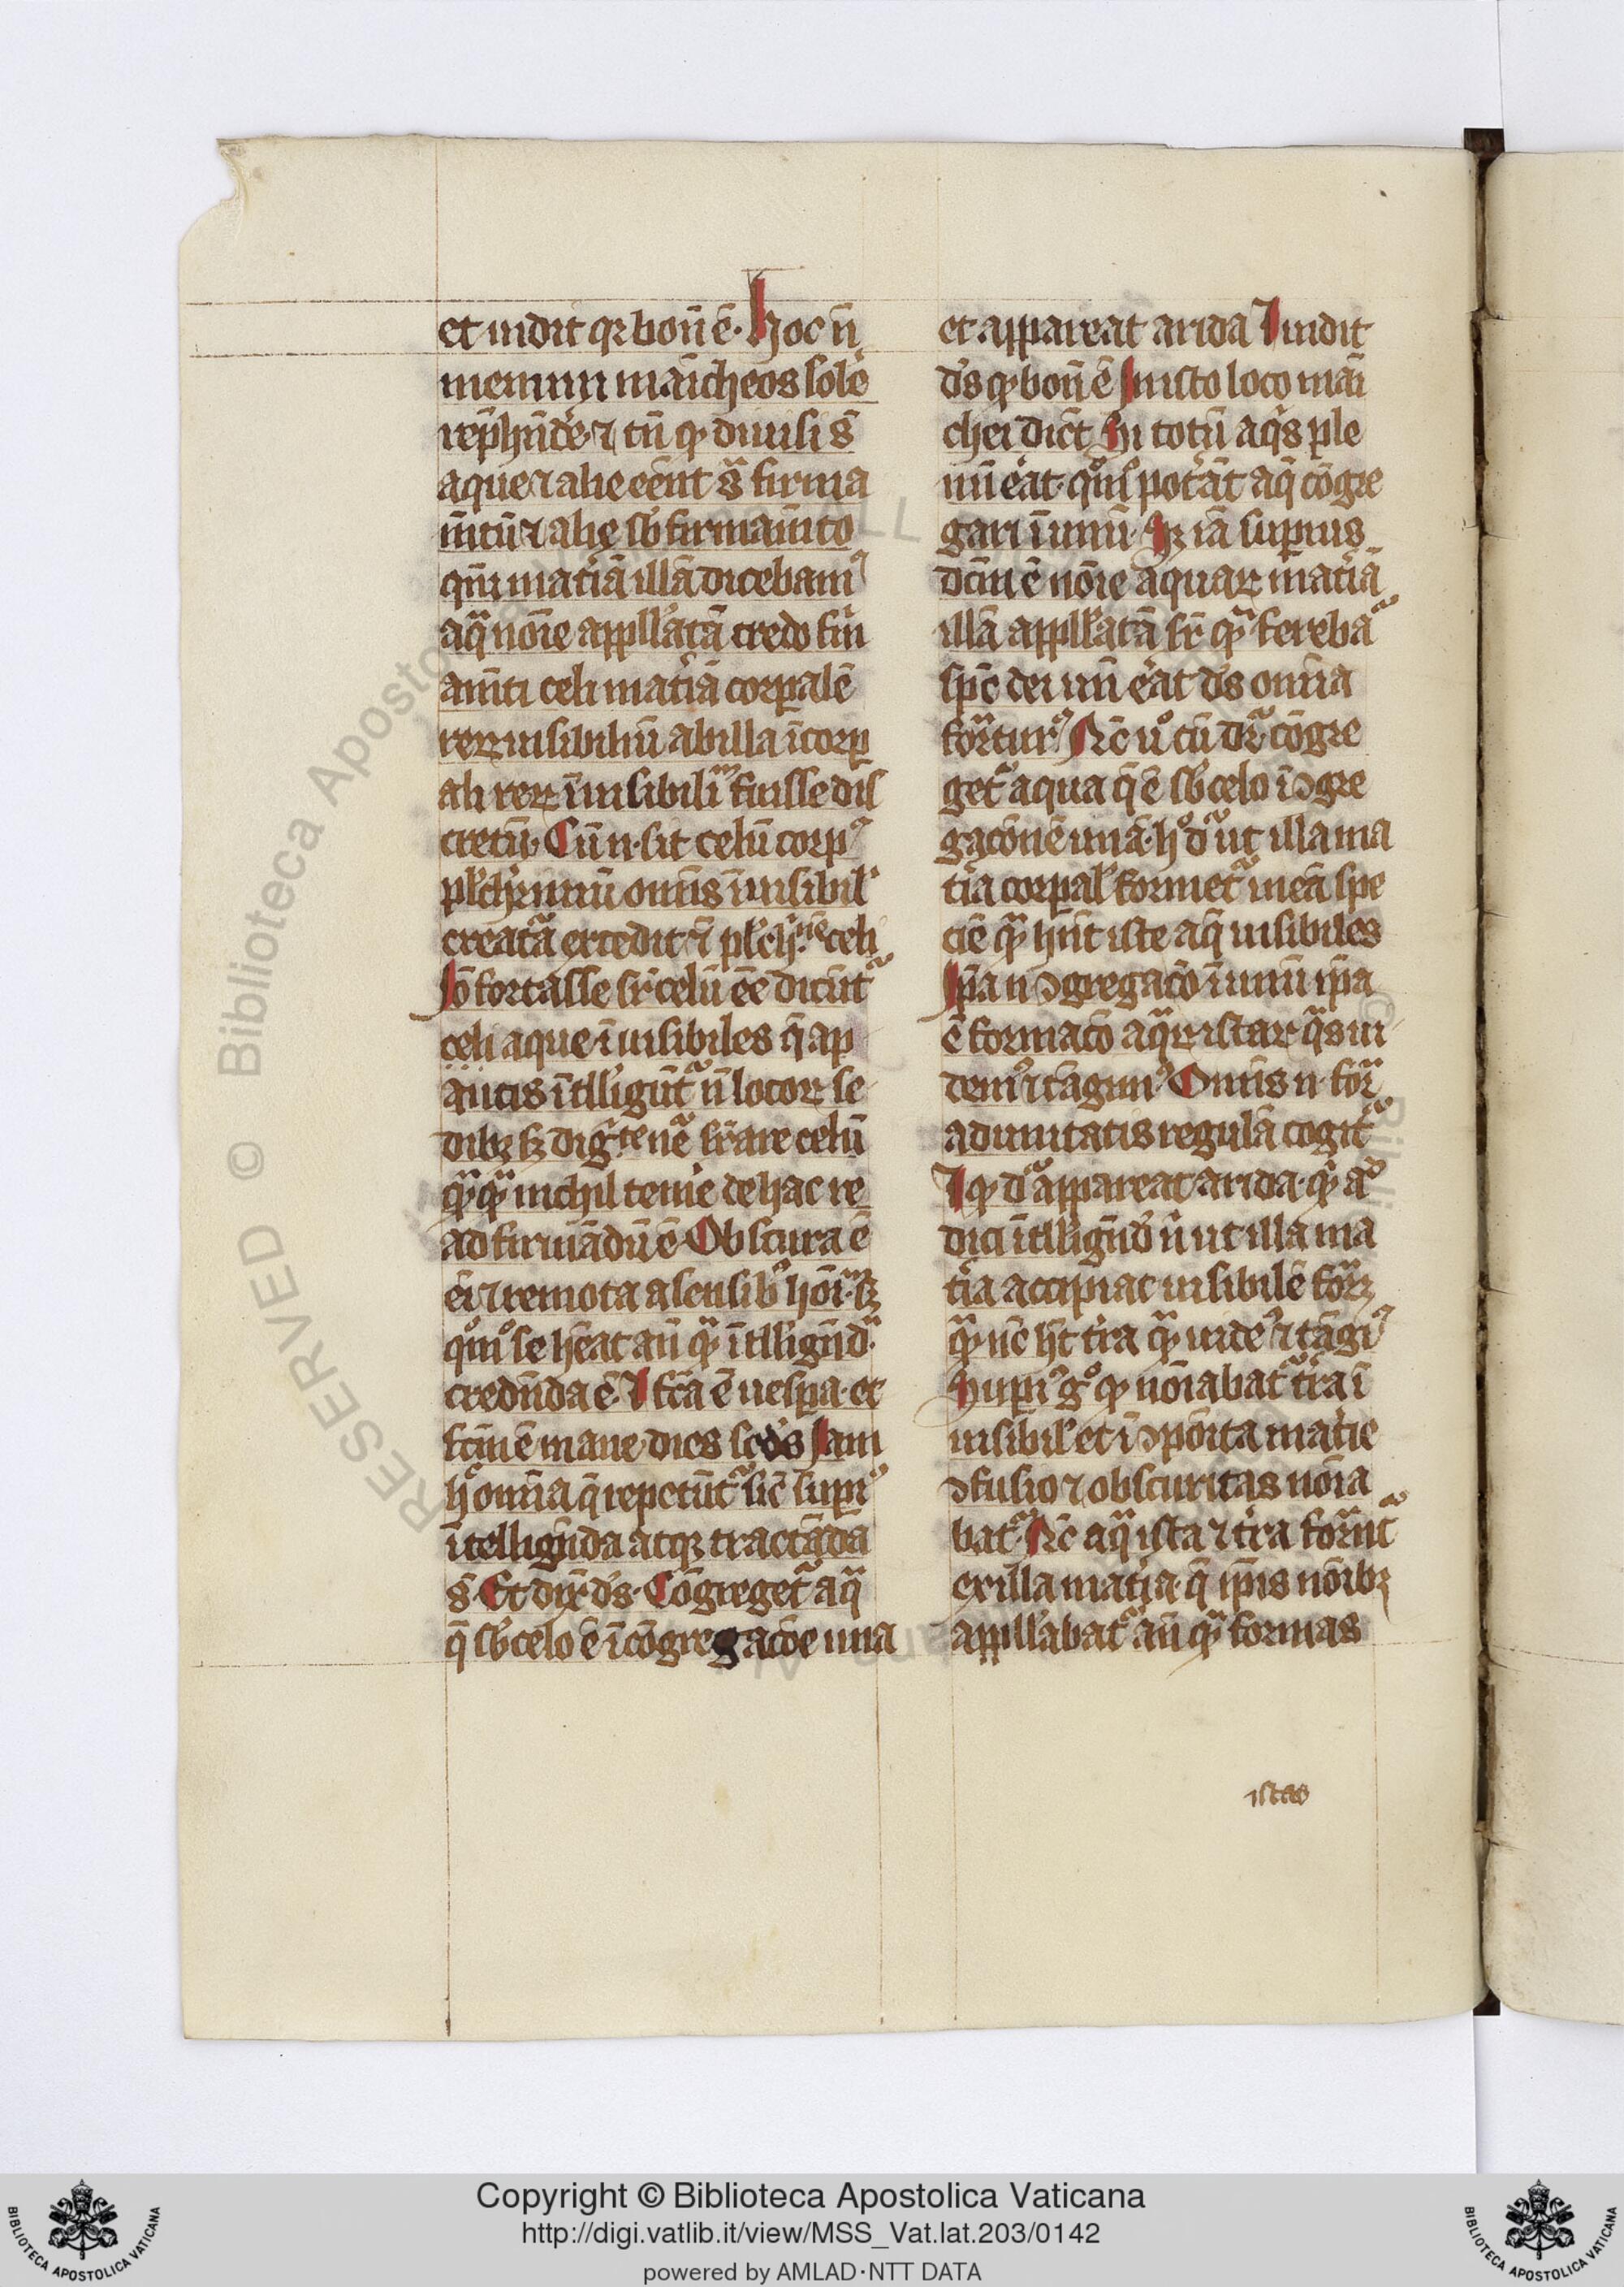 et uidit qr bonū ē. Hoc n̄
memini maīcheos solē
rep̄hn̄de. ⁊ tn̄ ꝙ diuisi s̄
aque ⁊ alie eēnt sͣ firma
m̄tū ⁊ alię sb̓ firmam̄to
qm̄ matīā illā dicebamꝰ
aqͣ noīe appll̓atā credo firm
am̄ti celi matīā corꝑalē
reꝝ uisibiliū ab illa īcorꝑ
ali reꝝ īuisibiliᷤ fuisse dis
cretū. Cū n. sit celū corpꝰ
pl̓ch̓rimū omīs īuisibil̓
creatͣa excedit ⁊ pl̓ch̓.nē celi
Iō fortasse sr̄ celū eē dicūtᷓ
celi aque īuisibiles q̄ ap
aucis ītlligūtᷓ n̄ locoꝝ se
dibꝫ sꝫ dig.te nē sr̄are celū
qͣꝙͣ nichil temē de hac re
ad firmādū ē. Obscura ē
eī ⁊ remota a sensibꝰ hoīᷤ. sꝫ
qͦmͦ se hēat an̄ qͣ ītlligēdͣ
credn̄da ē. ⁊ fc̄a ē uesꝑa. et
fcm̄ ē mane. dies scd̓s Iam
hͦ omīa q̄ repetūtᷓ sic̄ supꝰ
ītelligēda atqꝫ tractāda
s̄. Et dix̄ ds̄. Cōgregetᷓ aqͣ
q̄ sb̓ celo ē ī cōgregacōe una
et appareat arida ⁊ uidit
ds̄ ꝙ bonū ē In isto loco māi
chei dic̄t Si totū aqͥs ple
nū eāt. qͦmͦ pot̓ant aq̄ cōgre
gari ī unū. Sꝫ iā suꝑius
dcm̄ ē noīe aquaꝝ matīā
illā appll̓atā sr̄ qͣ ferebaᷓ
sp̄c dei un̄ eāt ds̄ omīa
formaturꝰ Nc̄ uͦ cū drᷓ cōgre
getᷓ aqua q̄ ē sb̓ celo ī ꝯgre
gacōnē unā. hͦ dᷓ ut illa ma
tīa corꝑal̓ formetᷓ in eā spe
ciē qͣ hn̄t iste aq̄ uisibiles
Ip̄a n ꝯgregacō ī unū ip̄a
ē formacō aqͣꝝ istaꝝ qͣs ui
demꝰ ⁊ tāgimꝰ Omīs n. forͣ
ad unitatis regulā cogitᷓ
⁊ ꝙ dᷓ appareat arida. qͥ aᷓ
dici ītlligēdͫ n̄ ut illa ma
tīa accipiat uisibilē formͣ
qͣ nc̄ ht̄ tr̄a qͣ uidemꝰ ⁊ tāgimꝰ
Supiꝰ gͦ ꝙ noīabatᷓ tr̄a ī
uisibil̓ et īꝯpoīta matīe
ꝯfusio ⁊ obscuritas noīa
batᷓ. Nc̄ aqͣ ista ⁊ tr̄a formntᷓ
ex illa matīa. q̄ ip̄is noībꝫ
appll̓abatᷓ an̄ qͣ formas
istas
Copyright © Biblioteca Apostolica Vaticana
http://digi.vatlib.it/view/MSS_Vat.lat.203/0142
powered by AMLAD·NTT DATA
BIBLIOTECA APOSTOLICA VATICANA
BIBLIOTECA APOSTOLICA VATICANA